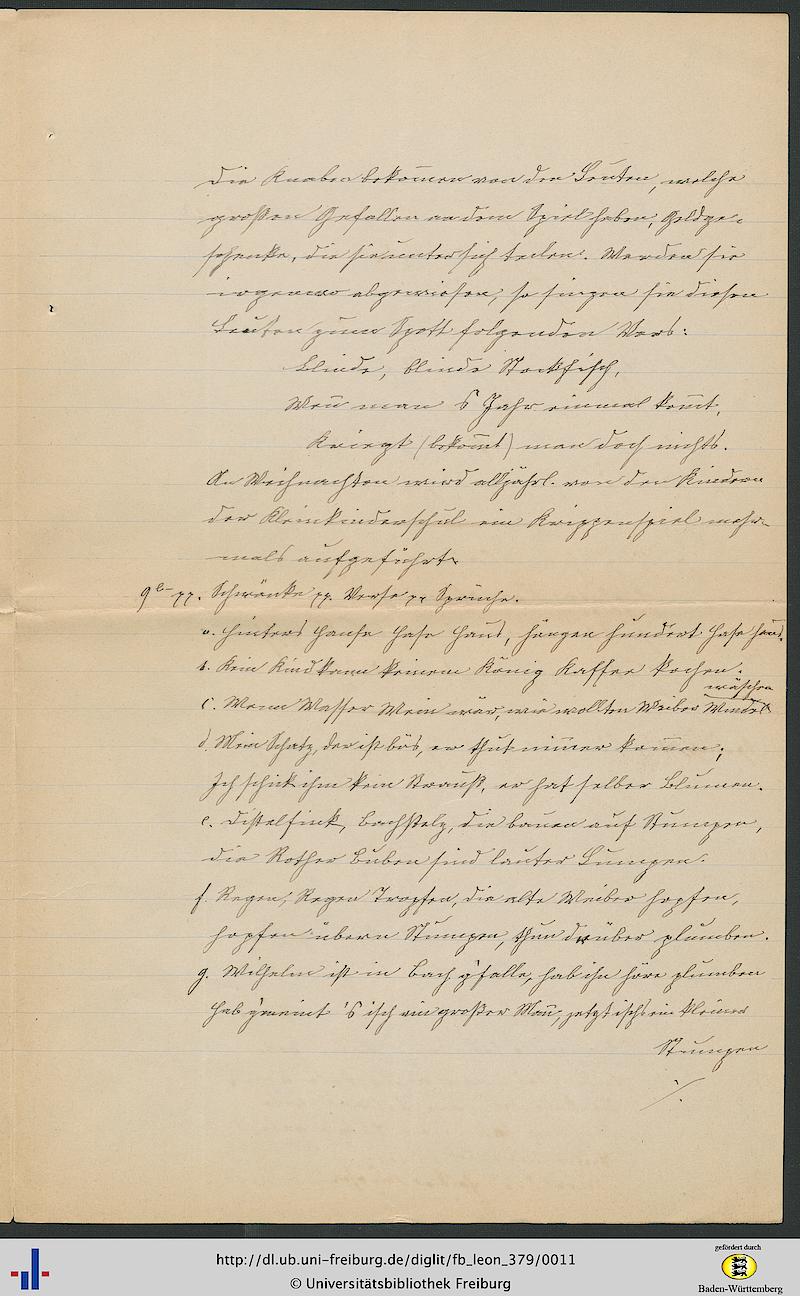 Die Knaben bekom̅en von den Leuten, welche
großen Gefallen an dem Spiel haben, Geldge-
schenke, die sie unter sich teilen. Werden sie
irgenwo abgewiesen, so singen sie diesen
Leuten zum Spott folgenden Vers:
Blinde, blinde Stockfisch,
Wen̅ man 's Jahr einmal kom̅t,
Kriegt (bekom̅t) man doch nichts.
An Weihnachten wird alljährl. von den Kindern
der Kleinkinderschul ein Krippenspiel mehr-
mals aufgeführt.
9b- pp. Schwänke pp. Verse pp Sprüche.
a. Hinters Hanse Hase Haus, hängen hundert Hase haus.
b. Kein Kind kann keinem König Kaffee kochen.
wäschen
c. Wenn Wasser Wein wär, wie wollten Weiber Windel
d. Mein Schatz, der ist bös, er thut nim̅er kom̅en;
Ich schick ihm kein Strauß, er hat selber Blumen.
e. Distelfink, Bachstelz, die bauen auf Stumpen,
die Rother Buben sind lauter Lumpen.
f. Regen, Regen Tropfen, die alte Weiber hopfen,
hopfen übern Stumpen, thun drüber plumben.
g. Wilhelm ist in Bach g'falle, hab ihn höre plumben
hab g'meint 's isch ein großer Man̅, jetzt ischs ein kleiner
Stumpen
./.
http://dl.ub.uni-freiburg.de/diglit/fb_leon_379/0011
© Universitätsbibliothek Freiburg
gefördert durch
Baden-Württemberg